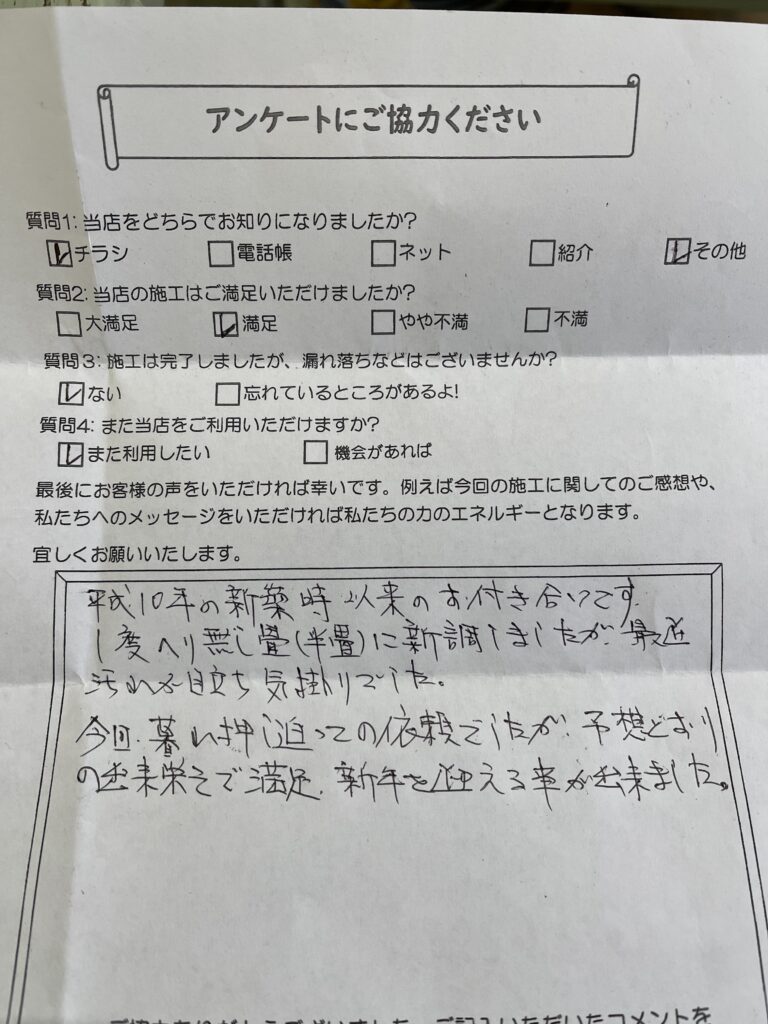 アンケートにご協力ください
質問1: 当店をどちらでお知りになりましたか?
チラシ 電話帳 ネット 紹介 その他
質問2: 当店の施工はご満足いただけましたか?
大満足 満足 やや不満 不満
質問3: 施工は完了しましたが、漏れ落ちなどはございませんか?
ない 忘れているところがあるよ!
質問4: また当店をご利用いただけますか?
また利用したい 機会があれば
最後にお客様の声をいただければ幸いです。例えば今回の施工に関してのご感想や、
私たちへのメッセージをいただければ私たちの力のエネルギーとなります。
宜しくお願いいたします。
平成10年の新築時以来のお付き合いです。
1度へり無し畳(半畳)に新調しましたが、最近
汚れが目立ち気掛りでした。
今回、暮れ押し迫っての依頼でしたが、予想どおり
の出来栄えで満足、新年を迎える事が出来ました。
ご協力ありがとうございました。ご記入いただいたコメントを